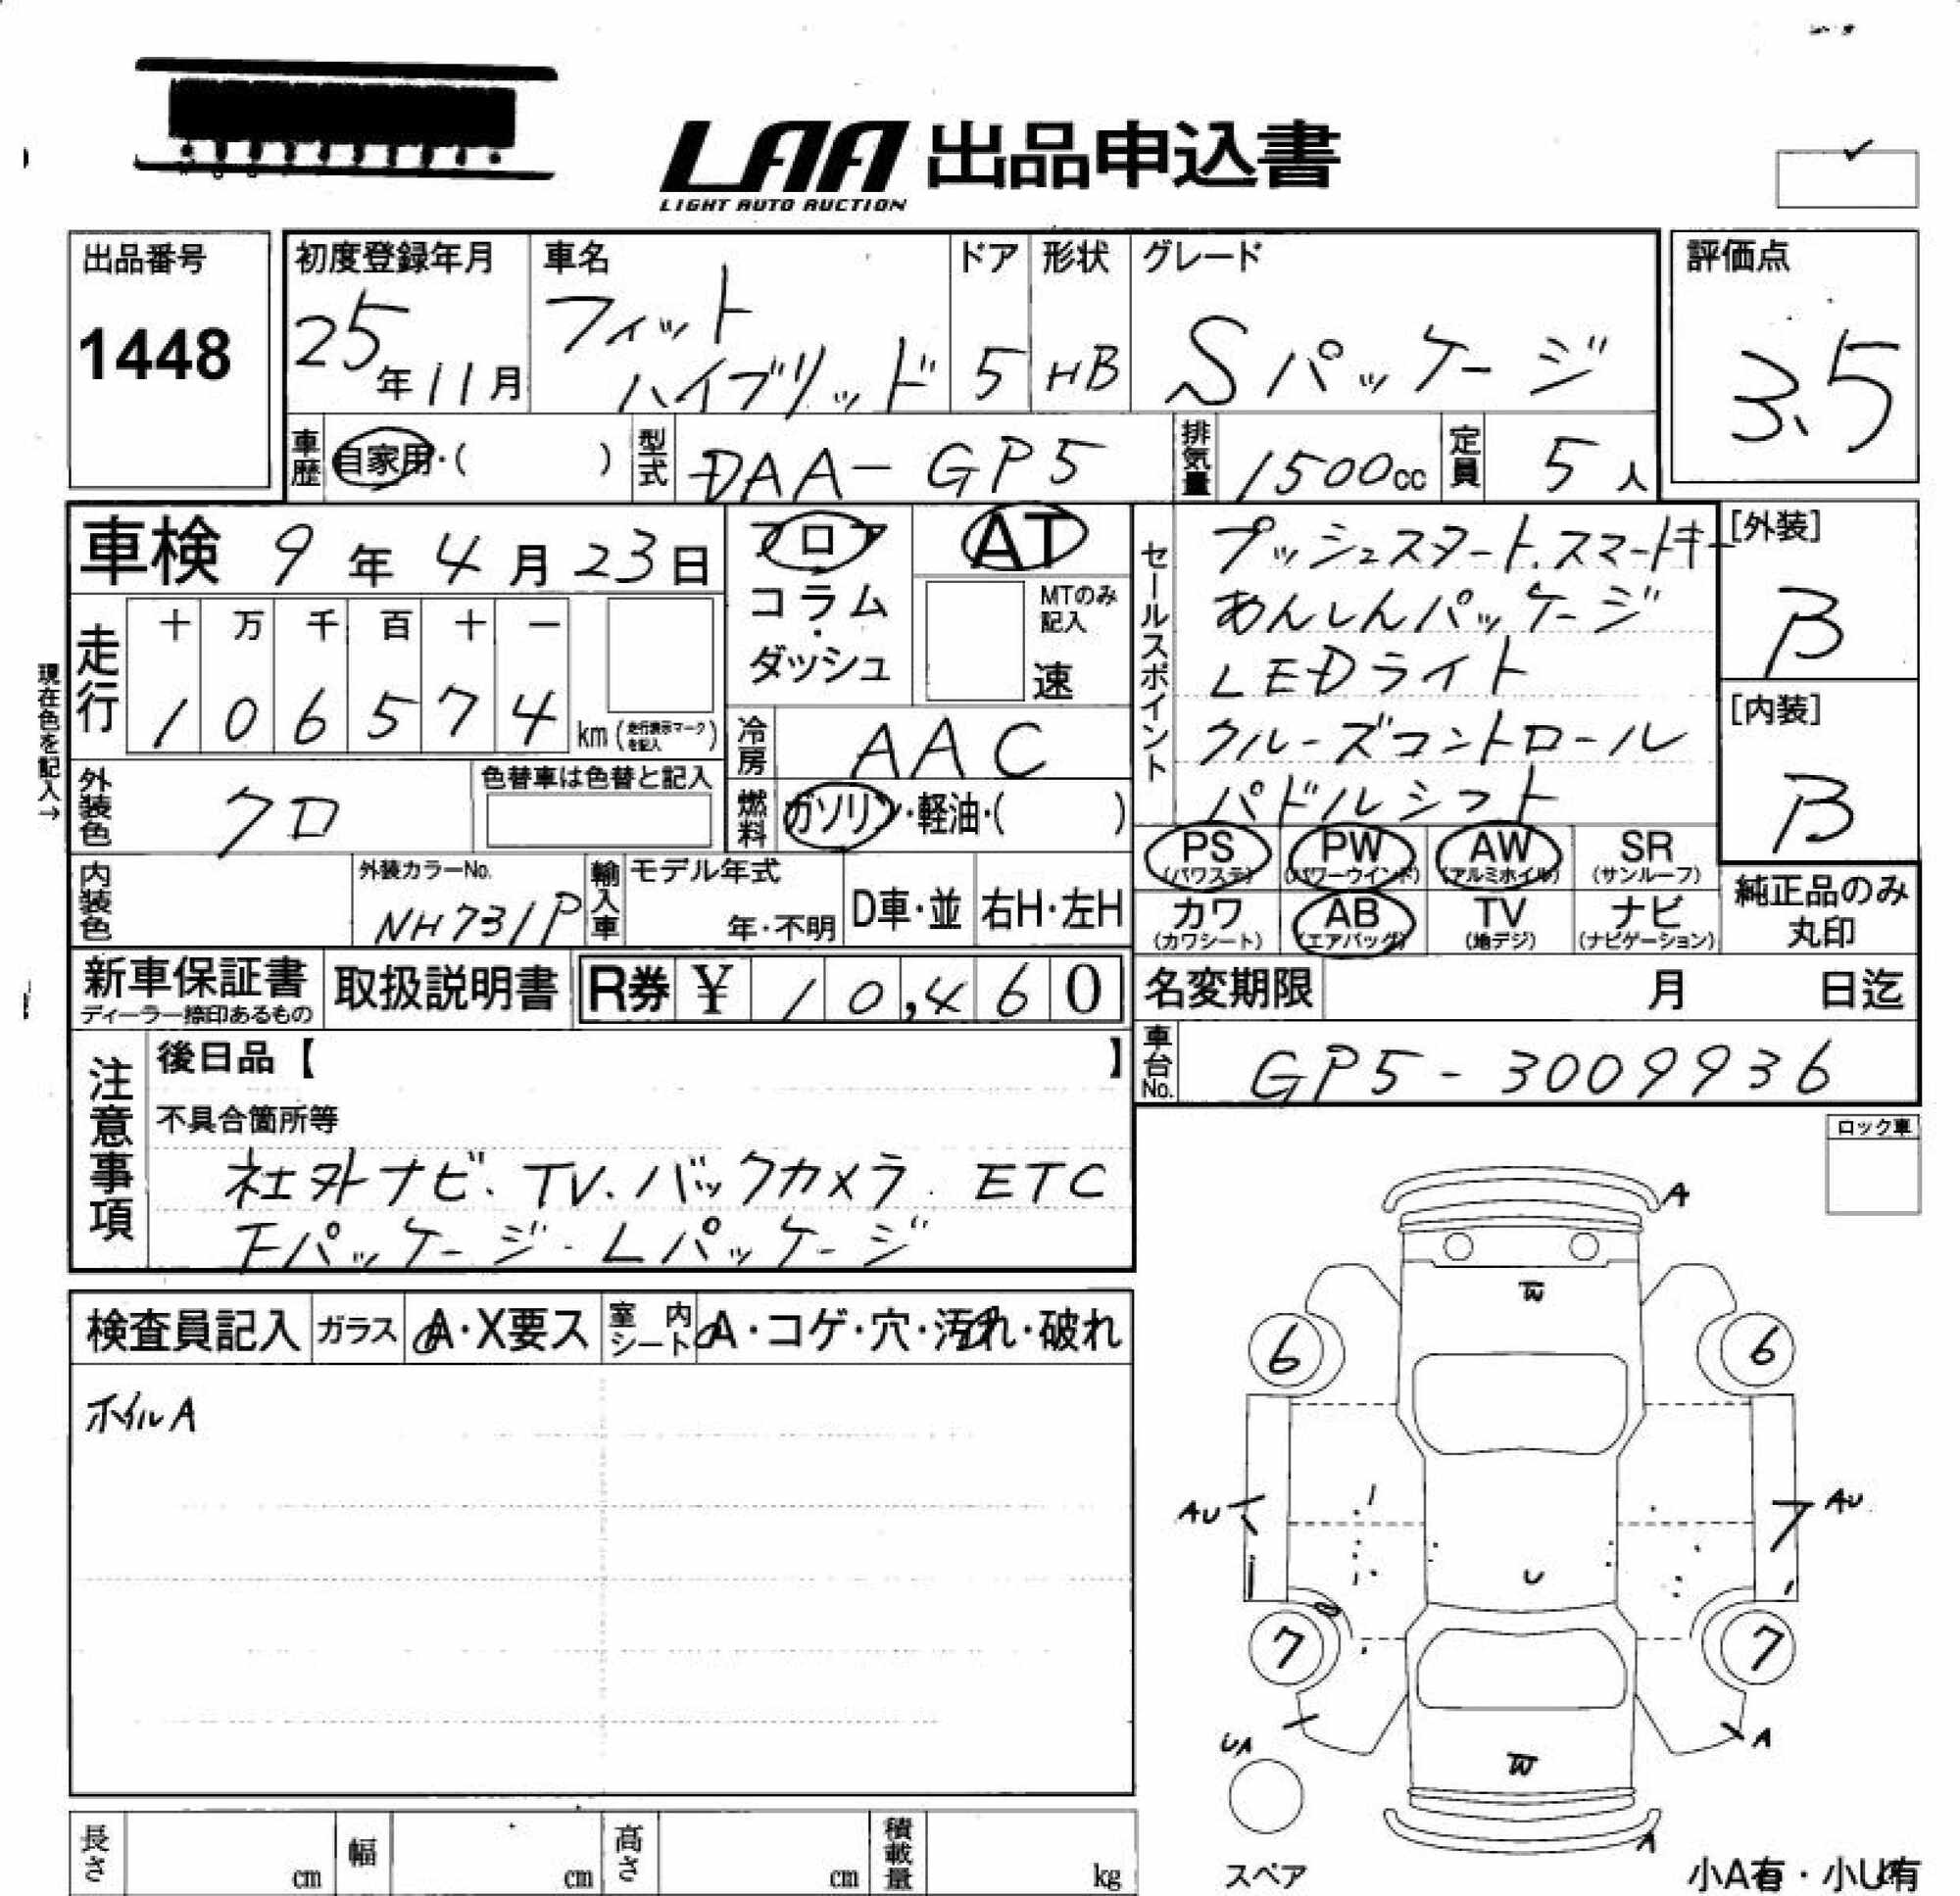 LAA 出品申込書
LIGHT AUTO AUCTION
出品番号
1448
初度登録年月
25年11月
車名
フィット
ハイブリッド
ドア
5
形状
HB
グレード
Sパッケージ
評価点
3.5
車歴
自家用・( )
型式
DAA-GP5
排気量
1500cc
定員
5人
車検 9年4月23日
フロア
コラム
・
ダッシュ
AT
MTのみ
記入
速
セールスポイント
プッシュスタート.スマートキー
あんしんパッケージ
LEDライト
クルーズコントロール
パドルシフト
[外装]
B
[内装]
B
現在色を記入→
走行
十 万 千 百 十 一
1 0 6 5 7 4 km(走行表示マークを記入)
冷房
AAC
外装色
クロ
色替車は色替と記入
燃料
ガソリン・軽油・( )
PS
(パワステ)
PW
(パワーウインド)
AW
(アルミホイル)
SR
(サンルーフ)
カワ
(カワシート)
AB
(エアバッグ)
TV
(地デジ)
ナビ
(ナビゲーション)
純正品のみ
丸印
内装色
外装カラーNo.
NH731P
輸入車
モデル年式
年・不明
D車・並
右H・左H
新車保証書
ディーラー捺印あるもの
取扱説明書
R券 ¥ 10,460
名変期限 月 日迄
車台No.
GP5-3009936
注意事項
後日品【 】
不具合箇所等
社外ナビ.TV.バックカメラ.ETC
Fパッケージ.Lパッケージ
ロック車
検査員記入
ガラス
A・X要ス
室内シート
A・コゲ・穴・汚れ・破れ
ホイルA
A
W
6 6
AU AU
U
7 7
UA A
W
A
スペア
小A有・小U有
長さ cm
幅 cm
高さ cm
積載量 kg